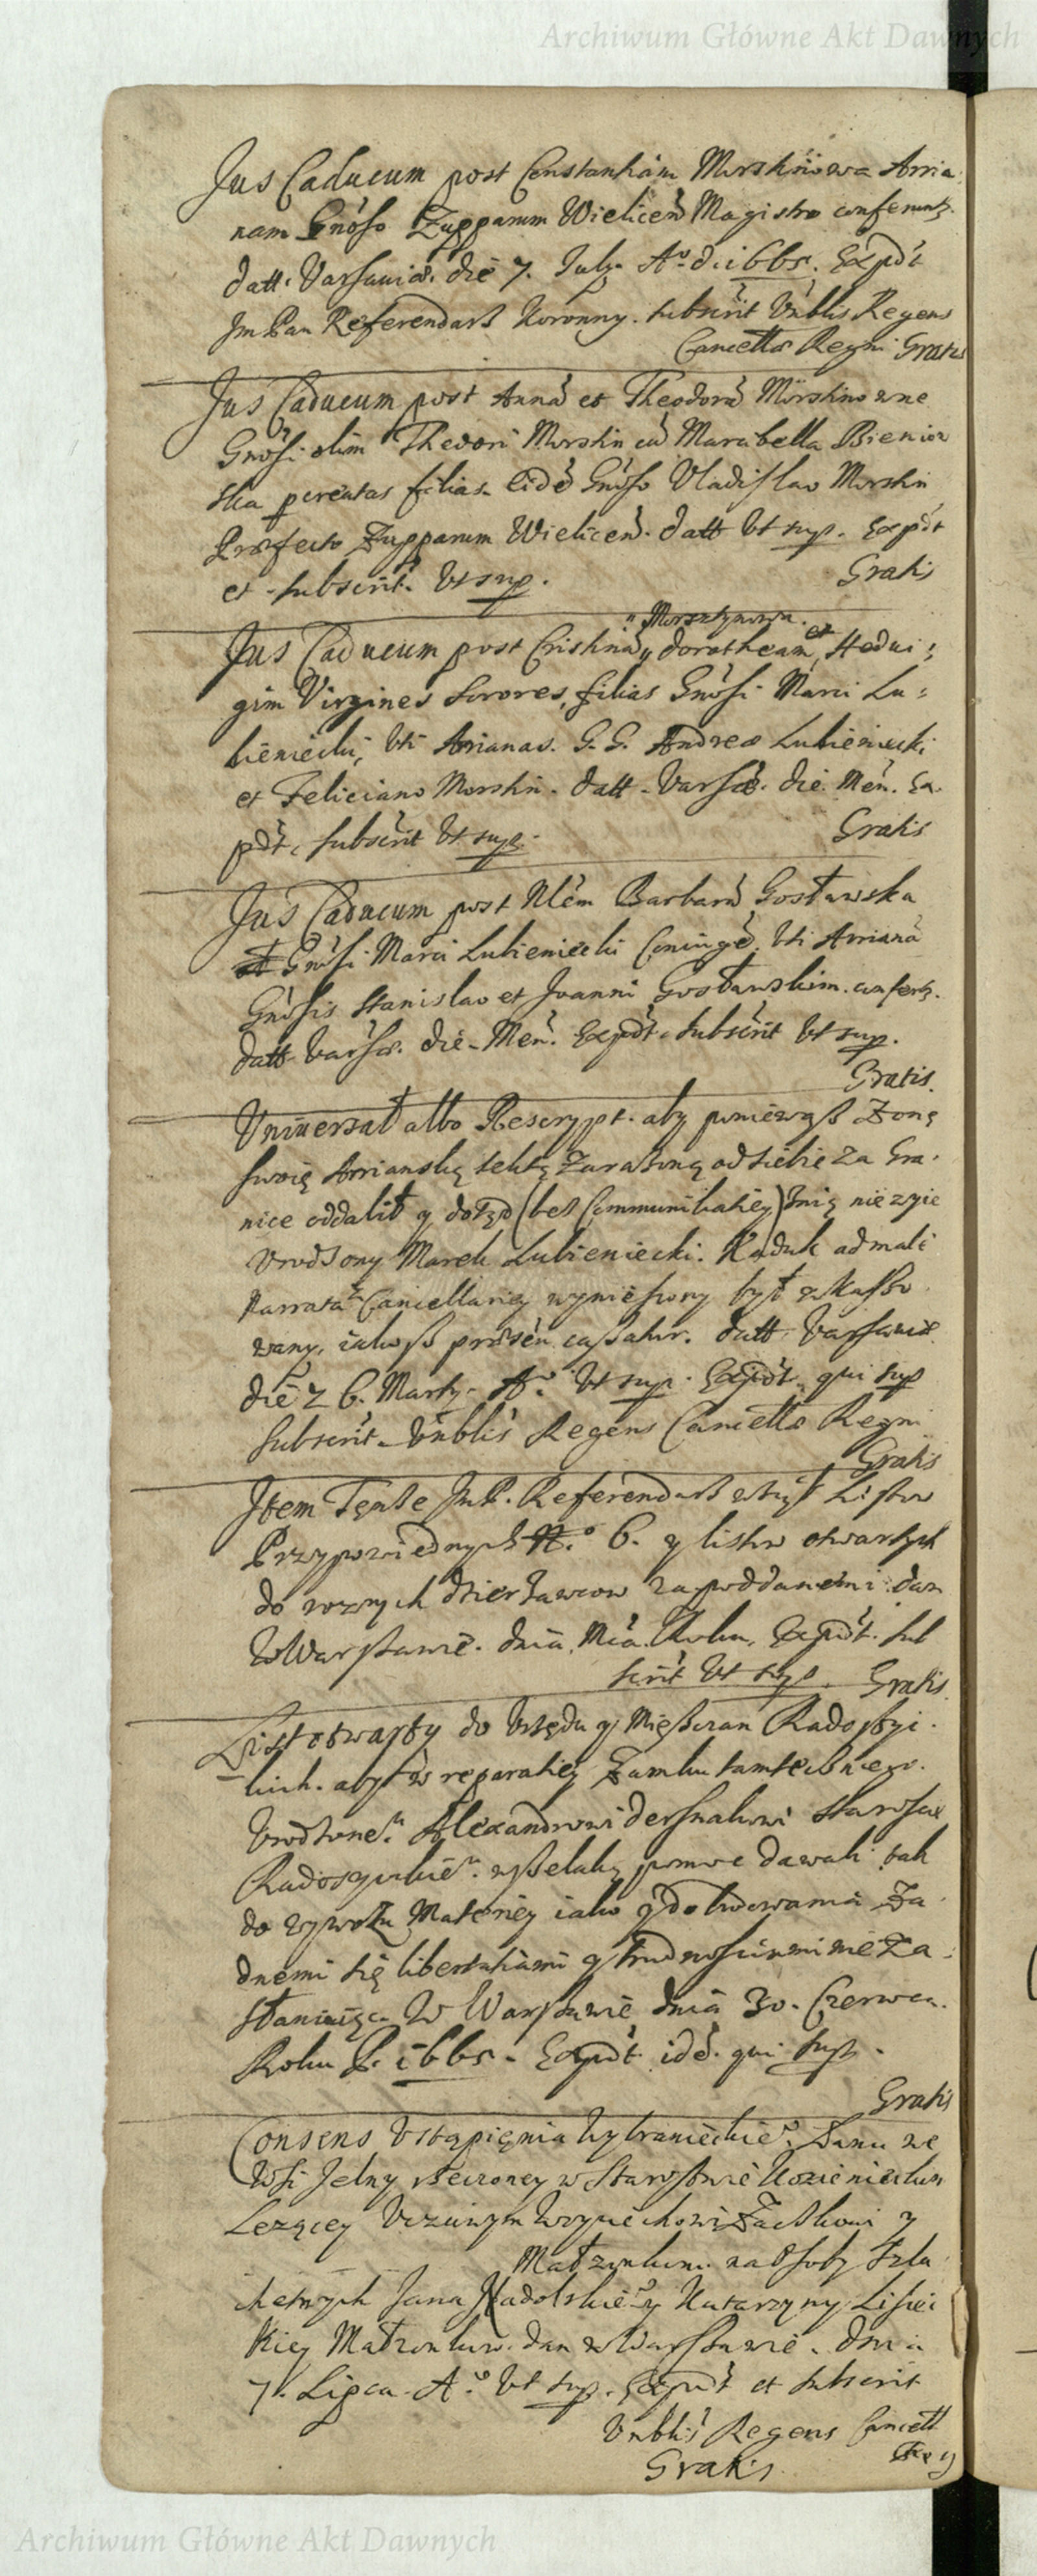 Archiwum Główne Akt Dawnych
Jus Caducum post Constantiam Morsktinowa Arria
nam Gnoso Zupparum Wielicen Magistro conferentz.
datt. Varsaviæ. die 7. July. Aº. d. 1665. Expdt
Jm Pan Referendarß Koronny. subscrit Vrblis Regens
Cancellæ Regni Gratis
Jus Caducum post Anna et Theodora Morstinowne
Gnosi olim Theodori Morstin cu Marabella Bienien
ska procreatas filias. eidē Gnoso Vladislao Morstin
Præfecto Zupparum Wielicen. datt Vt sup. Expdt
et subscrit. Vt sup.
Gratis
Jus Caducum post Cristina " dorotheam et Hedui:
" Morsztynowa.
gim Virgines sorores, filias Gnosi Marci Lu:
bieniecki, Vti Arianas. G. G. Andreæ Lubieniecki
et Feliciano Morstin. datt. Varsæ. die. Men. Ex
pdt, subscrit Vt sup.
Gratis
Jus Caducum post Nlem Barbara Gosławska
Gnosi Marci Lubieniecki Coniugē, Vti Arriana
Gnosis Stanislao et Joanni Gosławskim. confertz.
datt. Varsæ. die. Men. Expdt. subscrit Vt sup.
Gratis.
Vniwersał albo Rescrypt. aby poniewaß Zonę
swoię Arrianską sektą Zarażoną od siebie za Gra.
nice oddalił y dotąd (bes Communikatiey) znią nie zyie
Vrodzony Marek Lubieniecki. Kaduk ad male
Narrata z Cancellariey wyniesiony był zkasso
wany, iakoß præsen cassatur. datt. Varsaviæ
die 26. Marty. Aº. Vt sup. Expdt. qui sup
subscrit. Vrblis Regens Cancellæ Regni
Gratis
Item Tenże JmP. Referendarß wziął Listow
Przypowiednych Nº 6. y listow otwartych
do roznych dzierżawcow za poddanemi. dan
w Warßawie. dnia, Mca. Roku, Expdt. sub
scrit Vt sup. Gratis.
List otwarty do Vrzędu y Mießczan Radoszyc
kich. aby w reparatiey Zamku tamtecznego.
Vrodzone.º Alexandrowi dersnakowi Staroscie
Radoszyckie.º wßelaką pomoc dawali tak
do zywozu Materiey iako y do budowania Ża
dnemi się libertatiami y trudnosciami nie za
słaniaiąc. W Warßawie dnia 30. Czerwca.
Roku P. 1665. Expdt idē. qui sup.
Gratis
Consens Vstąpienia Wybranieckie.º Łanu we
Wsi Jelny rzeczoney w Starostwie Kozienickim
Lezącey Vczciwym Woyciechowi Zackowi y
Małzonkom. na Osoby Szla
chetnych Jana Nadolskie.º y Katarzyny Lisiec
kiey Małzonkow. dan w Warßawie. dnia
7. Lipca. Aº. Vt sup. Expdt et subscrit
Vrblis Regens Cancell
Reg
Gratis
Archiwum Główne Akt Dawnych